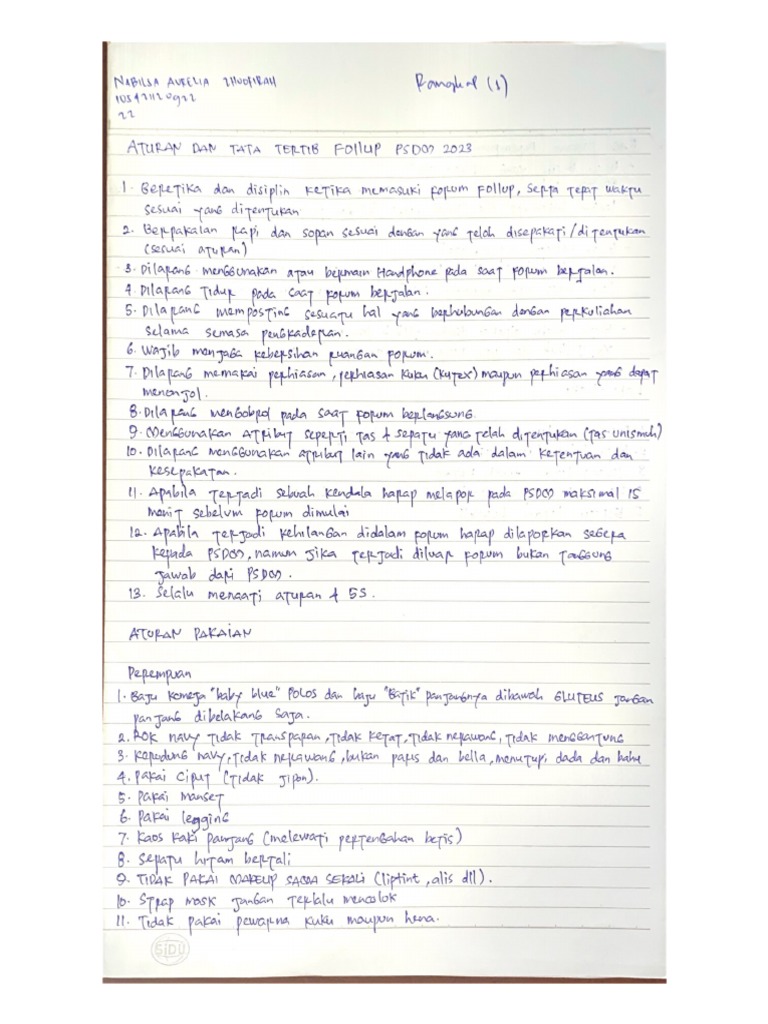 NABILSA AURELIA
Rangkap (1)
105421120922
22
ATURAN DAN TATA TERTIB FOLLUP PSDM 2023
1. Beretika dan disiplin ketika memasuki forum Follup, serta tepat waktu
sesuai yang ditentukan
2. Berpakaian rapi dan sopan sesuai dengan yang telah disepakati/ditentukan
(sesuai aturan)
3. Dilarang menggunakan atau bermain Handphone pada saat forum berjalan.
4. Dilarang Tidur pada saat forum berjalan.
5. Dilarang memposting sesuatu hal yang berhubungan dengan perkuliahan
selama semasa pengkaderan.
6. Wajib menjaga kebersihan ruangan forum.
7. Dilarang memakai perhiasan, perhiasan kuku (kutex) maupun perhiasan yang dapat
menonjol.
8. Dilarang mengobrol pada saat forum berlangsung
9. Menggunakan atribut seperti tas & sepatu yang telah ditentukan (tas unismuh)
10. Dilarang menggunakan atribut lain yang tidak ada dalam ketentuan dan
kesepakatan.
11. Apabila terjadi sebuah kendala harap melapor pada PSDM maksimal 15
menit sebelum forum dimulai
12. Apabila terjadi kehilangan didalam forum harap dilaporkan segera
kepada PSDM, namun jika terjadi diluar forum bukan tanggung
jawab dari PSDM.
13. Selalu menaati aturan & 5S.
ATURAN PAKAIAN
Perempuan
1. Baju kemeja "baby blue" polos dan baju "Batik" panjangnya dibawah GLUTEUS jangan
panjang dibelakang saja.
2. ROK navy tidak transparan, tidak ketat, tidak nerawang, tidak menggantung
3. Kerudung navy, tidak nerawang, bukan paris dan bella, menutupi dada dan bahu
4. Pakai ciput (tidak jipon).
5. Pakai manset
6. Pakai legging
7. Kaos kaki panjang (melewati pertengahan betis)
8. Sepatu hitam bertali
9. TIDAK PAKAI MAKEUP SAMA SEKALI (liptint, alis dll).
10. Strap mask jangan terlalu mencolok
11. Tidak pakai pewarna kuku maupun hena.
SIDU